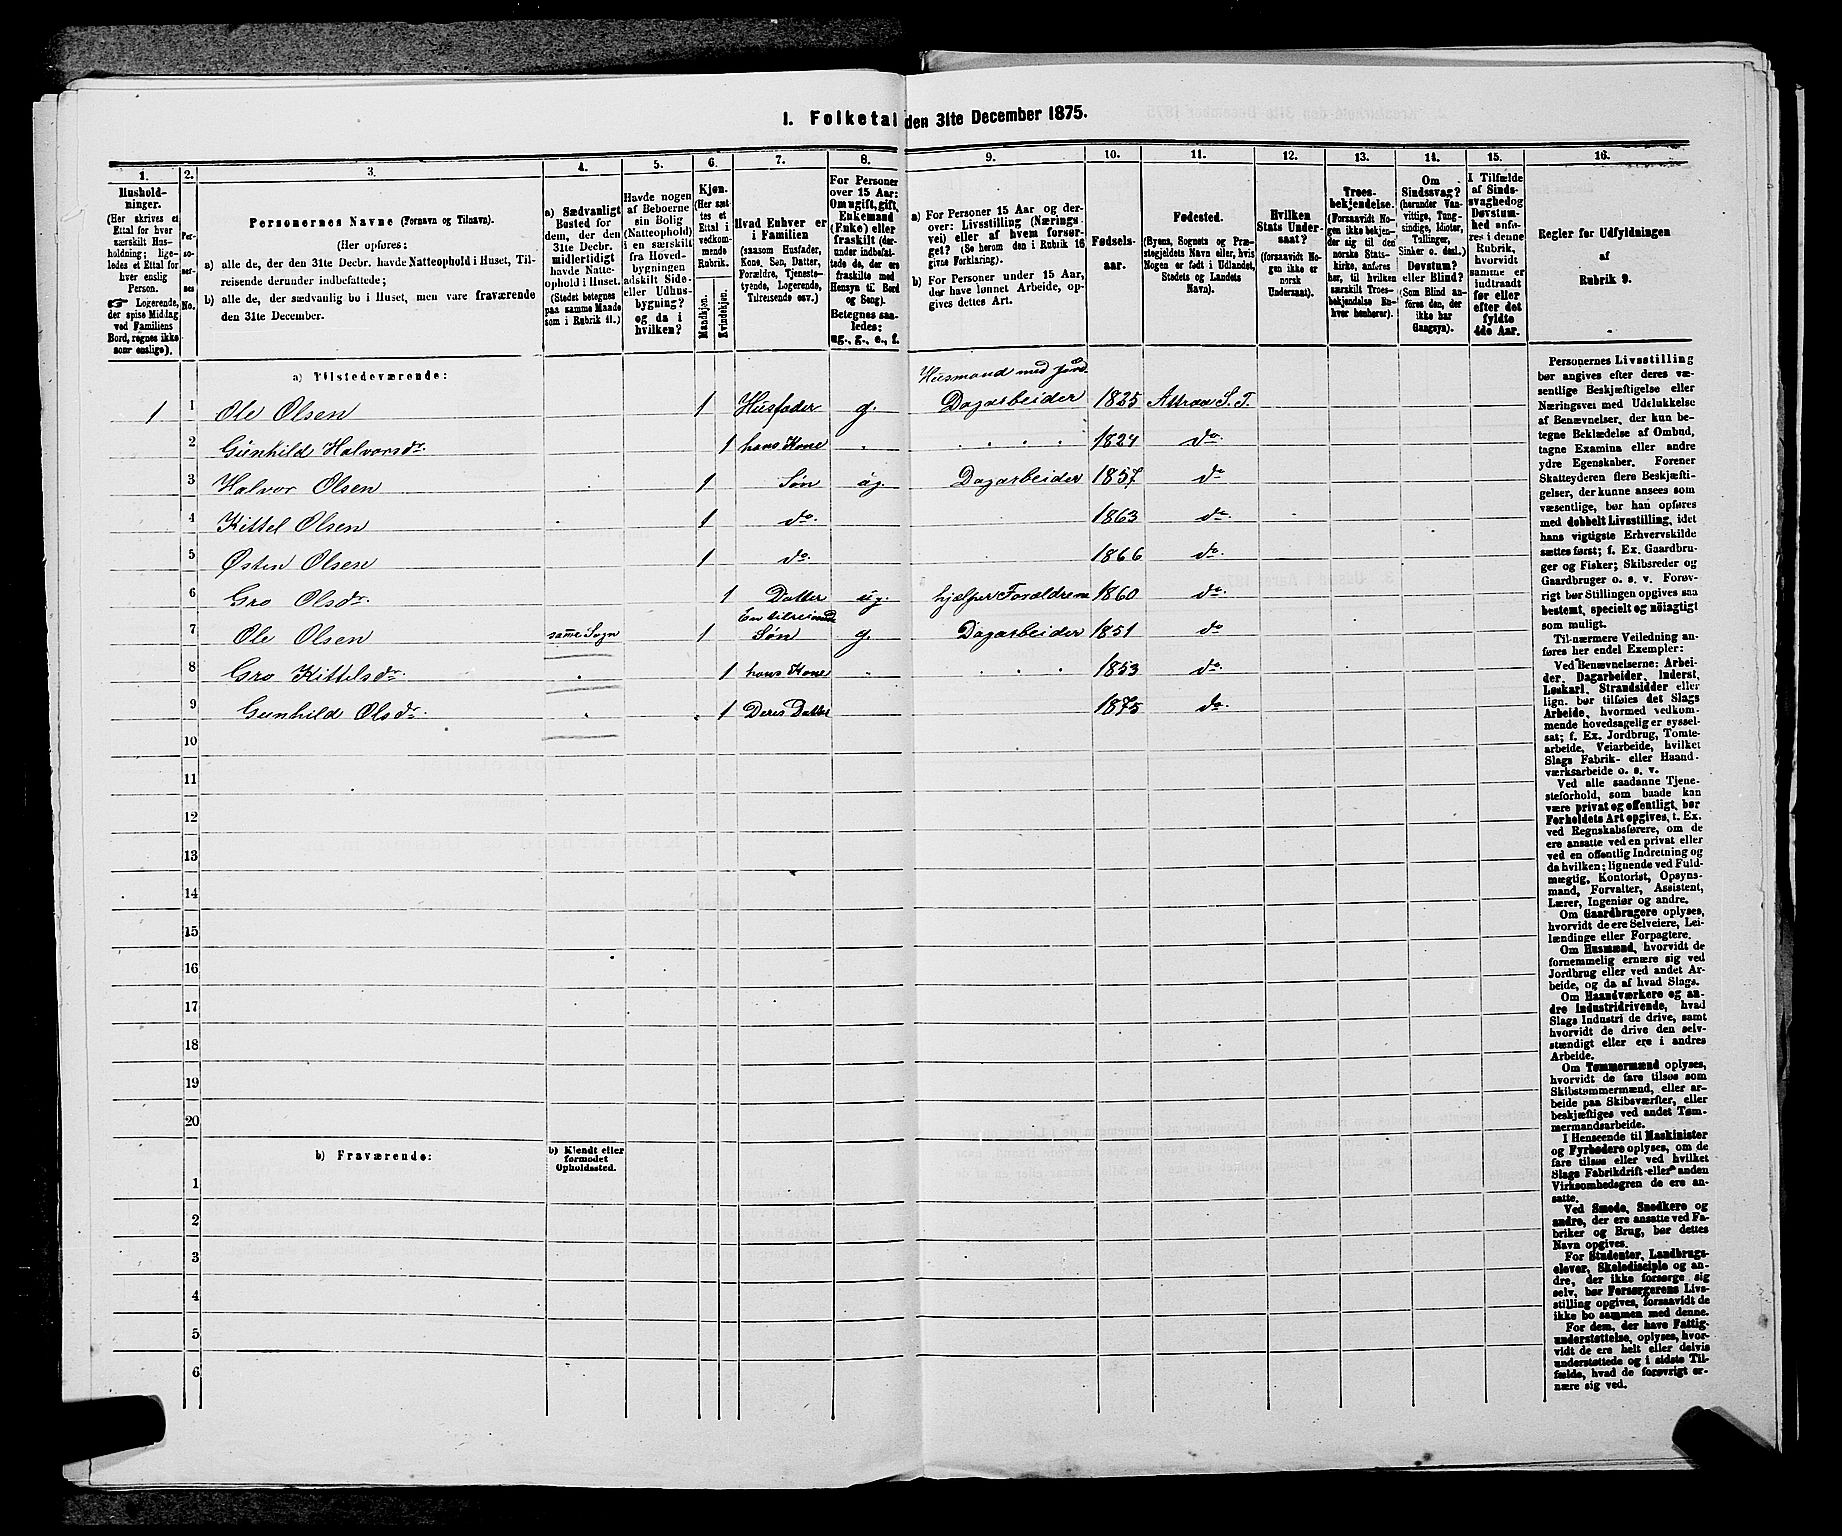 1. Folketal den 31te December 1875.
1. 2. 3. 4. 5. 6. 7. 8. 9. 10. 11. 12. 13. 14. 15. 16.
Hushold-
ninger.
(Her skrives et
Ettal for hver
særskilt Hus-
holdning; lige-
ledes et Ettal for
hver enslig
Person.
☞ Logerende,
der spise Middag
ved Familiens
Bord, regnes ikke
som enslige).
Per-
soner-
nes
No.
Personernes Navne (Fornavn og Tilnavn).
(Her opføres:
a) alle de, der den 31te Decbr. havde Natteophold i Huset, Til-
reisende derunder indbefattede;
b) alle de, der sædvanlig bo i Huset, men vare fraværende
den 31te December.
a) Sædvanligt
Bosted for
dem, der den
31te Decbr.
midlertidigt
havde Natte-
ophold i Huset.
(Stedet betegnes
paa samme Maade
som i Rubrik 11.)
Havde nogen
af Beboerne
sin Bolig
(Natteophold)
i en særskilt
fra Hoved-
bygningen
adskilt Side-
eller Udhus-
bygning?
og da i
hvilken?
Kjøn.
(Her sæt-
tes et
Ettal i
vedkom-
mende
Rubrik.
Mandkjøn.
Kvindekjøn.
Hvad Enhver er
i Familien
(saasom Husfader,
Kone, Søn, Datter,
Forældre, Tjeneste-
tyende, Logerende,
Tilreisende osv.)
For Personer
over 15 Aar:
Om ugift, gift,
Enkemand
(Enke) eller
fraskilt (der-
under indbefat-
tede de, der ere
fraskilte med
Hensyn til Bord
og Seng).
Betegnes saa-
ledes:
ug., g., e., f.
a) For Personer 15 Aar og der-
over: Livsstilling (Nærings-
vei) eller af hvem forsør-
get? (Se herom den i Rubrik 16
givne Forklaring).
b) For Personer under 15 Aar,
der have lønnet Arbeide, op-
gives dettes Art.
Fødsels-
aar.
Fødested.
(Byens, Sognets og Præ-
stegjeldets Navn eller, hvis
Nogen er født i Udlandet,
Stedets og Landets
Navn).
Hvilken
Stats Under-
saat?
(forsaavidt No-
gen ikke er
norsk
Undersaat).
Troes-
bekjendelse.
(Forsaavidt No-
gen ikke bekjen-
der sig til den
norske Stats-
kirke, anføres
her, til hvilken
særskilt Troes-
bekjendelse En-
hver henhører).
Om
Sindssvag?
(herunder Van-
vittige, Tung-
sindige, Idioter,
Tullinger,
Sinker o. desl.)
Døvstum?
eller Blind?
(Som Blind an-
føres den, der
ikke har
Gangsyn).
I Tilfælde
af Sinds-
svaghed og
Døvstum-
hed anfø-
res i denne
Rubrik,
hvorvidt
samme er
indtraadt
før eller
efter det
fyldte
4de Aar.
Regler for Udfyldningen
af
Rubrik 9.
a) Tilstedeværende:
Husmand med Jord
1 1 Ole Olsen 1 Husfader g. Dagarbeider 1825 Attraa S. T.
2 Gunhild Halvorsdr. 1 hans Kone " " " " 1824 do.
3 Halvor Olsen 1 Søn ug. Dagarbeider 1857 do
4 Kittel Olsen 1 do. 1863 do.
5 Østen Olsen 1 do. 1866 do.
6 Gro Olsdr. 1 Datter ug. hjælper Forældrene 1860 do.
En tilreisende
7 Ole Olsen samme Sogn 1 Søn g. Dagarbeider 1851 do
8 Gro Kittelsdr. " 1 hans Kone " " " 1853 do.
9 Gunhild Olsdr. " 1 Deres Datter 1875 do.
10
11
12
13
14
15
16
17
18
19
20
b) Fraværende: b) Kjendt eller
formodet
Opholdssted.
1
2
3
4
5
6
Personernes Livsstilling
bør angives efter deres væ-
sentlige Beskjæftigelse eller
Næringsvei med Udelukkelse
af Benævnelser, der kun be-
tegne Beklædelse af Ombud,
tagne Examina eller andre
ydre Egenskaber. Forener
Skatteyderen flere Beskjæfti-
gelser, der kunne ansees som
væsentlige, bør han opføres
med dobbelt Livsstilling, idet
hans vigtigste Erhvervskilde
sættes først; f. Ex. Gaardbru-
ger og Fisker; Skibsreder og
Gaardbruger o. s. v. Forøv-
rigt bør Stillingen opgives saa
bestemt, specielt og nöiagtigt
som muligt.
Til nærmere Veiledning an-
føres her endel Exempler:
Ved Benævnelserne: Arbei-
der, Dagarbeider, Inderst,
Løskarl, Strandsidder eller
lign. bør tilføies det Slags
Arbeide, hvormed vedkom-
mende hovedsagelig er syssel-
sat; f. Ex. Jordbrug, Tomte-
arbeide, Veiarbeide, hvilket
Slags Fabrik- eller Haand-
værksarbeide o. s. v.
Ved alle saadanne Tjene-
steforhold, som baade kan
være privat og offentligt, bør
Forholdets Art opgives, t. Ex.
ved Regnskabsførere, om de
ere ansatte ved en privat eller
ved en offentlig Indretning og
da hvilken; lignende ved Fuld-
mægtig, Kontorist, Opsyns-
mand, Forvalter, Assistent,
Lærer, Ingeniør og andre.
Om Gaardbrugere oplyses,
hvorvidt de ere Selveiere, Lei-
lændinge eller Forpagtere.
Om Husmænd, hvorvidt de
fornemmelig ernære sig ved
Jordbrug eller ved andet Ar-
beide, og da af hvad Slags.
Om Haandværkere og an-
dre Industridrivende, hvad
Slags Industri de drive, samt
hvorvidt de drive den selv-
stændigt eller ere i andres
Arbeide.
Om Tømmermænd oplyses,
hvorvidt de fare tilsøs som
Skibstømmermænd, eller ar-
beide paa Skibsværfter, eller
beskjæftiges ved andet Tøm-
mermandsarbeide.
I Henseende til Maskinister
og Fyrbødere oplyses, om de
fare tilsøs eller ved hvilket
Slags Fabrikdrift eller anden
Virksomhedsgren de ere an-
satte.
Ved Smede, Snedkere og
andre, der ere ansatte ved Fa-
briker og Brug, bør dettes
Navn opgives.
For Studenter, Landbrugs-
elever, Skoledisciple og an-
dre, der ikke forsørge sig
selv, bør Forsørgerens Livs-
stilling opgives, forsaavidt de
ikke bo sammen med denne.
For dem, der have Fattig-
understøttelse, oplyses, hvor-
vidt de ere helt eller delvis
understøttede og i sidste Til-
fælde, hvad de forøvrigt er-
nære sig ved.